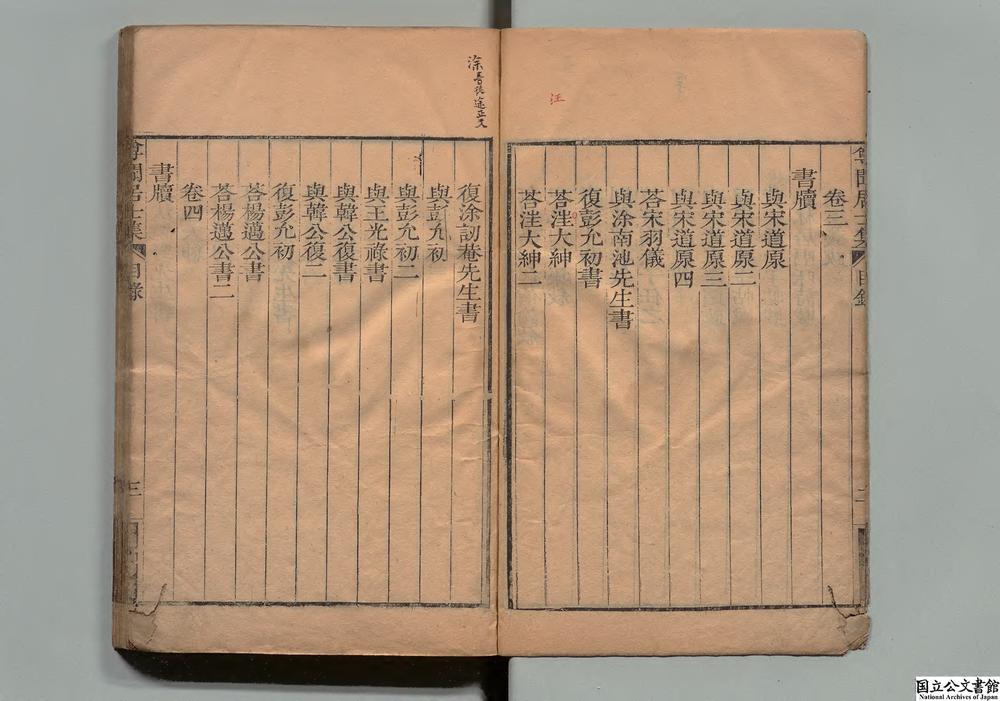 尊聞居士集 目錄 二
卷三
書牘
與宋道原
與宋道原二
與宋道原三
與宋道原四
荅宋羽儀
與涂南池先生書
復彭允初書
汪
荅汪大紳
荅汪大紳二
涂
復涂訒菴先生書
與彭允初
與彭允初二
與王光祿書
與韓公復書
與韓公復二
復彭允初
荅楊邁公書
荅楊邁公書二
卷四
書牘
尊聞居士集 目錄 三
国立公文書館
National Archives of Japan